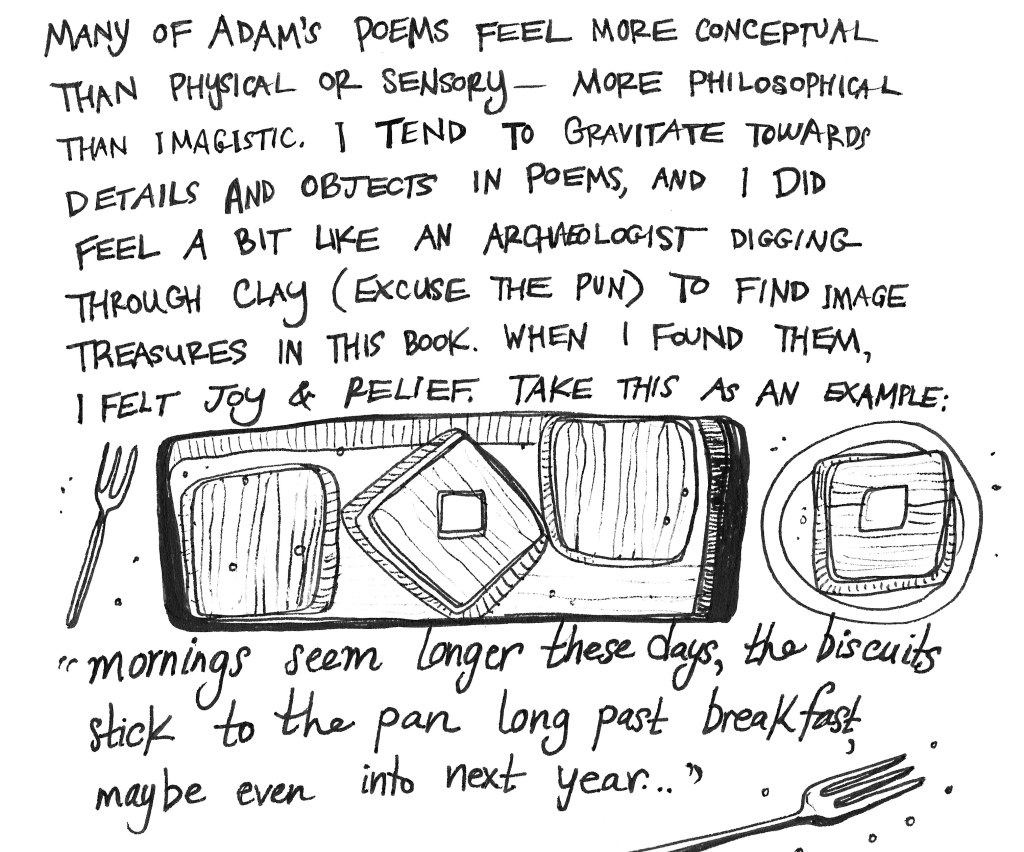 MANY OF ADAM'S POEMS FEEL MORE CONCEPTUAL
THAN PHYSICAL OR SENSORY— MORE PHILOSOPHICAL
THAN IMAGISTIC. I TEND TO GRAVITATE TOWARDS
DETAILS AND OBJECTS IN POEMS, AND I DID
FEEL A BIT LIKE AN ARCHAEOLOGIST DIGGING
THROUGH CLAY (EXCUSE THE PUN) TO FIND IMAGE
TREASURES IN THIS BOOK. WHEN I FOUND THEM,
I FELT JOY & RELIEF. TAKE THIS AS AN EXAMPLE:
"mornings seem longer these days, the biscuits
stick to the pan long past breakfast,
maybe even into next year..."